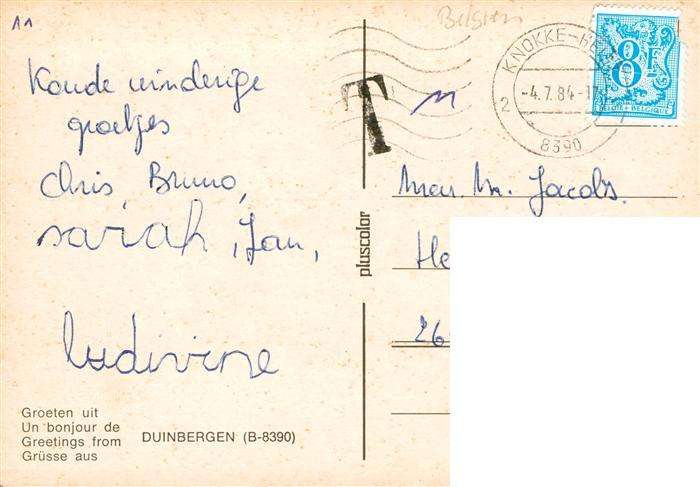 11
Belgien
Koude winderige
groetjes
Chris, Bruno,
sarah, Jan,
ludivine
Groeten uit
Un bonjour de
Greetings from
Grüsse aus
DUINBERGEN (B-8390)
pluscolor
T
KNOKKE-
-4.7.84-17
2
8390
8F
BELGIË • BELGIQUE
Jacobs.
He
26